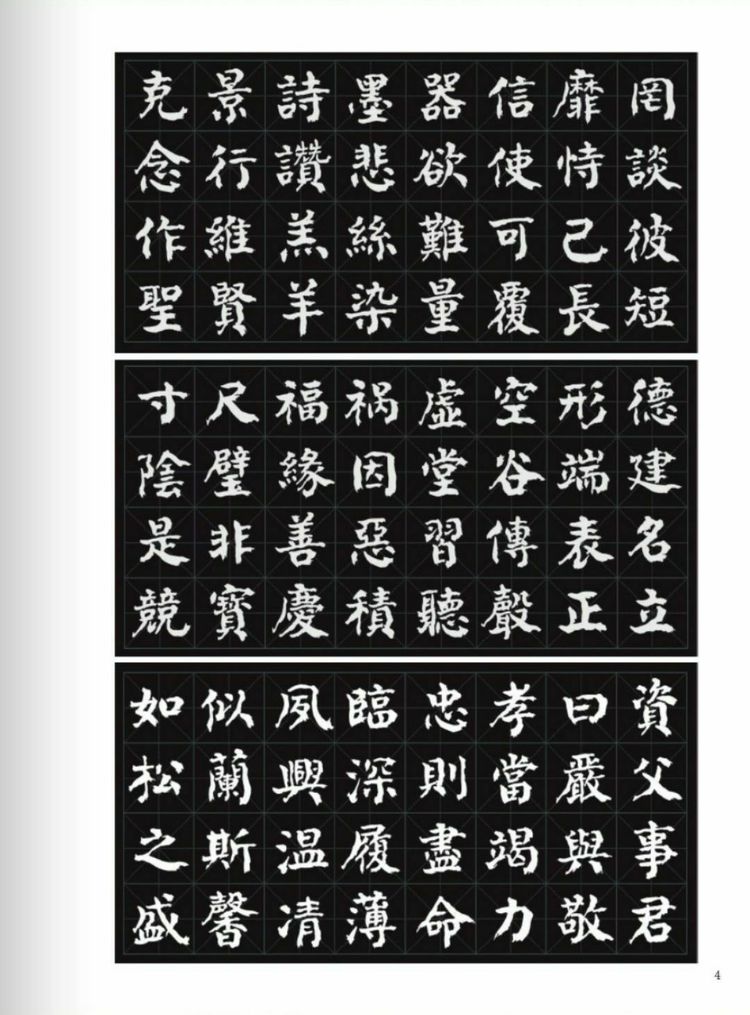 罔談彼短
靡恃己長
信使可覆
器欲難量
墨悲絲染
詩讚羔羊
景行維賢
克念作聖
德建名立
形端表正
空谷傳聲
虛堂習聽
禍因惡積
福緣善慶
尺璧非寶
寸陰是競
資父事君
曰嚴與敬
孝當竭力
忠則盡命
臨深履薄
夙興温凊
似蘭斯馨
如松之盛
4